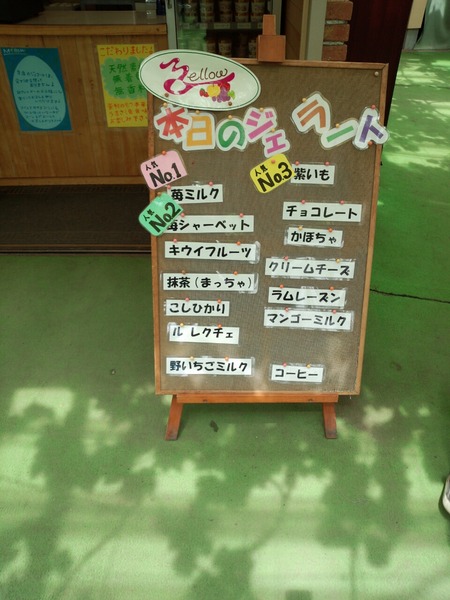 mellow
本日のジェラート
人気 No.1
苺ミルク
人気 No.2
苺シャーベット
キウイフルーツ
抹茶(まっちゃ)
こしひかり
ル レクチェ
野いちごミルク
人気 No.3
紫いも
チョコレート
かぼちゃ
クリームチーズ
ラムレーズン
マンゴーミルク
コーヒー
こだわりました